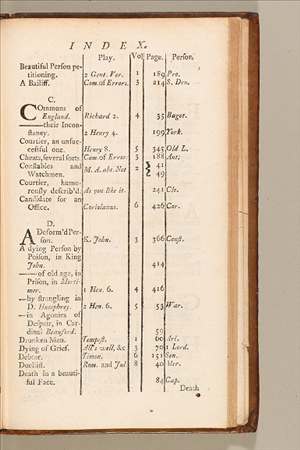 I N D E X.
Play. Vol Page. Person.
Beautiful Person pe-
titioning. 2 Gent. Ver. 1 189 Pro.
A Bailiff. Com. of Errors. 3 214 S. Dro.
C.
COmmons of
England. Richard 2. 4 35 Bagot.
——their Incon-
stancy. 2 Henry 4. 199 York.
Courtier, an unsuc-
cessful one. Henry 8. 5 345 Old L.
Cheats, several sorts. Com of Errors. 3 188 Ant:
Constables and
Watchmen. M. A. abt. Not 2 } 41
49
Courtier, humo-
rously describ'd. As you like it. 241 Clo.
Candidate for an
Office. Coriolanus. 6 426 Cor.
D.
ADeform'd Per-
son. K. John. 3 366 Const.
A dying Person by
Poison, in King
John. 414
——of old age, in
Prison, in Morti-
mer. 1 Hen. 6. 4 416
—by strangling in
D. Humphrey. 2 Hen. 6. 5 53 War.
—in Agonies of
Despair, in Car-
dinal Beauford. 59
Drunken Men. Tempest. 1 60 Ari.
Dying of Grief. All's well, &c 3 70 1 Lord.
Debtor. Timon. 6 151 Sen.
Duellist. Rom. and Jul 8 40 Mer.
Death in a beauti-
ful Face. 84 Cap.
Death